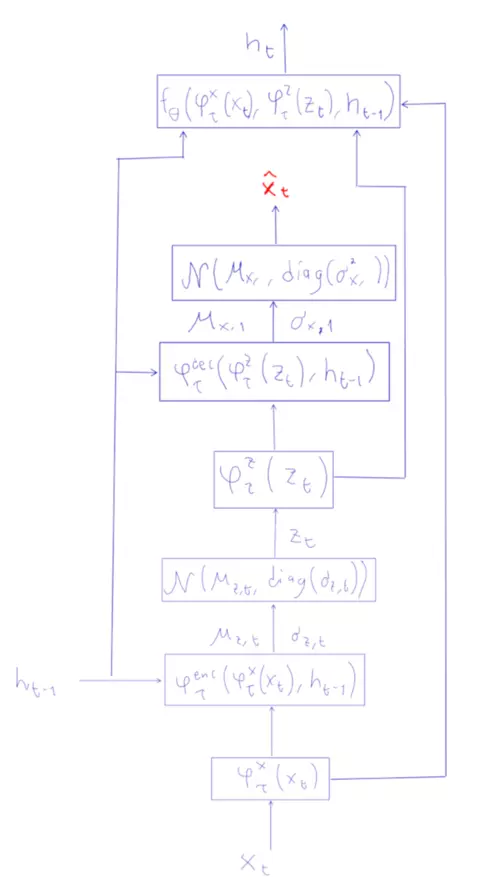 h_t
f_θ(φ_τ^x(x_t), φ_τ^z(z_t), h_{t-1})
x̂_t
𝒩(μ_x, , diag(σ_x,^2 ))
μ_{x,1} σ_{x,1}
φ_τ^{dec}(φ_τ^z(z_t), h_{t-1})
φ_τ^z(z_t)
z_t
𝒩(μ_{z,t}, diag(σ_{z,t}))
μ_{z,t} σ_{z,t}
h_{t-1} φ_τ^{enc}(φ_τ^x(x_t), h_{t-1})
φ_τ^x(x_t)
x_t